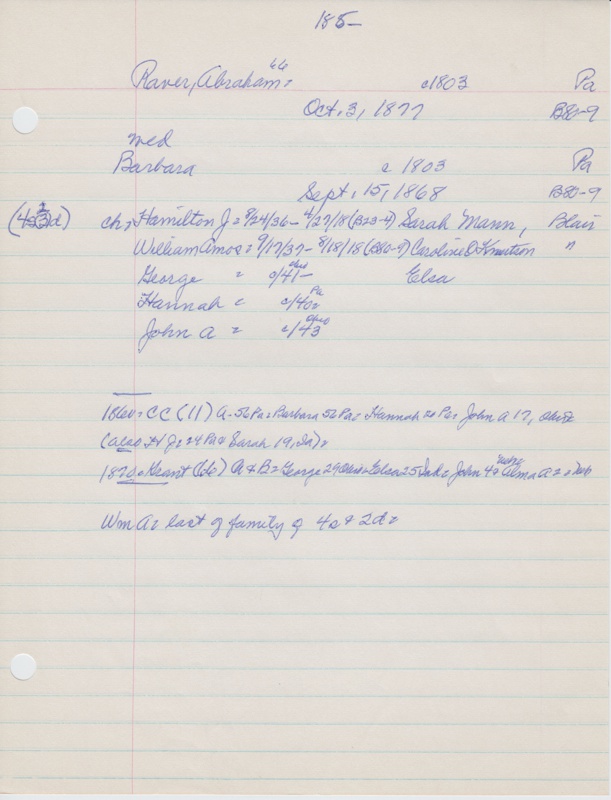 185-
Raver, Abraham = "66" c1803 Pa
Oct. 3, 1877 B80-9
med
Barbara c 1803 Pa
Sept. 15, 1868 B80-9
(4s 2 d) ch; Hamilton J = 8/24/36 - 4/27/18 (B23-4) Sarah Mann, Blair
William Amos = 9/17/37 - 8/18/18 (B80-9) Caroline D Knutson "
George = c/41 - Ohio Elsa
Hannah = c/40 = Pa
John A = c/43 Ohio
1860 = CC (11) A - 56 Pa = Barbara 56 Pa = Hannah 20 Pa = John A 17, Ohio
(also H J = 24 Pa & Sarah 19, Ia) =
1870 = Grant (66) A & B = George 29 Ohio = Elsa 25 Ind = John 4 & Alma A = 2
Wm A = last of family of 4s & 2d =